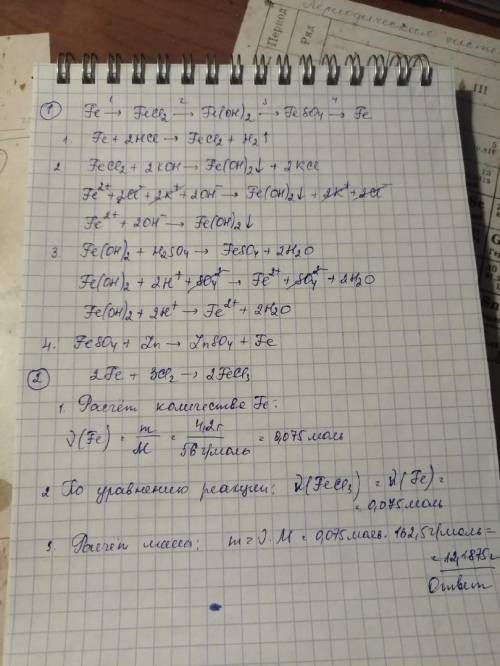 Периодическая систе
Период
Ряд
III
① Fe →¹ FeCl₂ →² Fe(OH)₂ →³ FeSO₄ →⁴ Fe
1. Fe + 2HCl → FeCl₂ + H₂↑
2 FeCl₂ + 2KOH → Fe(OH)₂↓ + 2KCl
Fe²⁺ + 2Cl⁻ + 2K⁺ + 2OH⁻ → Fe(OH)₂↓ + 2K⁺ + 2Cl⁻
Fe²⁺ + 2OH⁻ → Fe(OH)₂↓
3. Fe(OH)₂ + H₂SO₄ → FeSO₄ + 2H₂O
Fe(OH)₂ + 2H⁺ + SO₄²⁻ → Fe²⁺ + SO₄²⁻ + 2H₂O
Fe(OH)₂ + 2H⁺ → Fe²⁺ + 2H₂O
4. FeSO₄ + Zn → ZnSO₄ + Fe
② 2Fe + 3Cl₂ → 2FeCl₃
1. Расчёт количества Fe:
ν(Fe) = m/M = 4,2г/56 г/моль = 0,075 моль
2 По уравнению реакции: ν(FeCl₃) = ν(Fe) =
= 0,075 моль
3. Расчёт массы: m = ν·M = 0,075 моль · 162,5 г/моль =
= 12,1875 г
Ответ